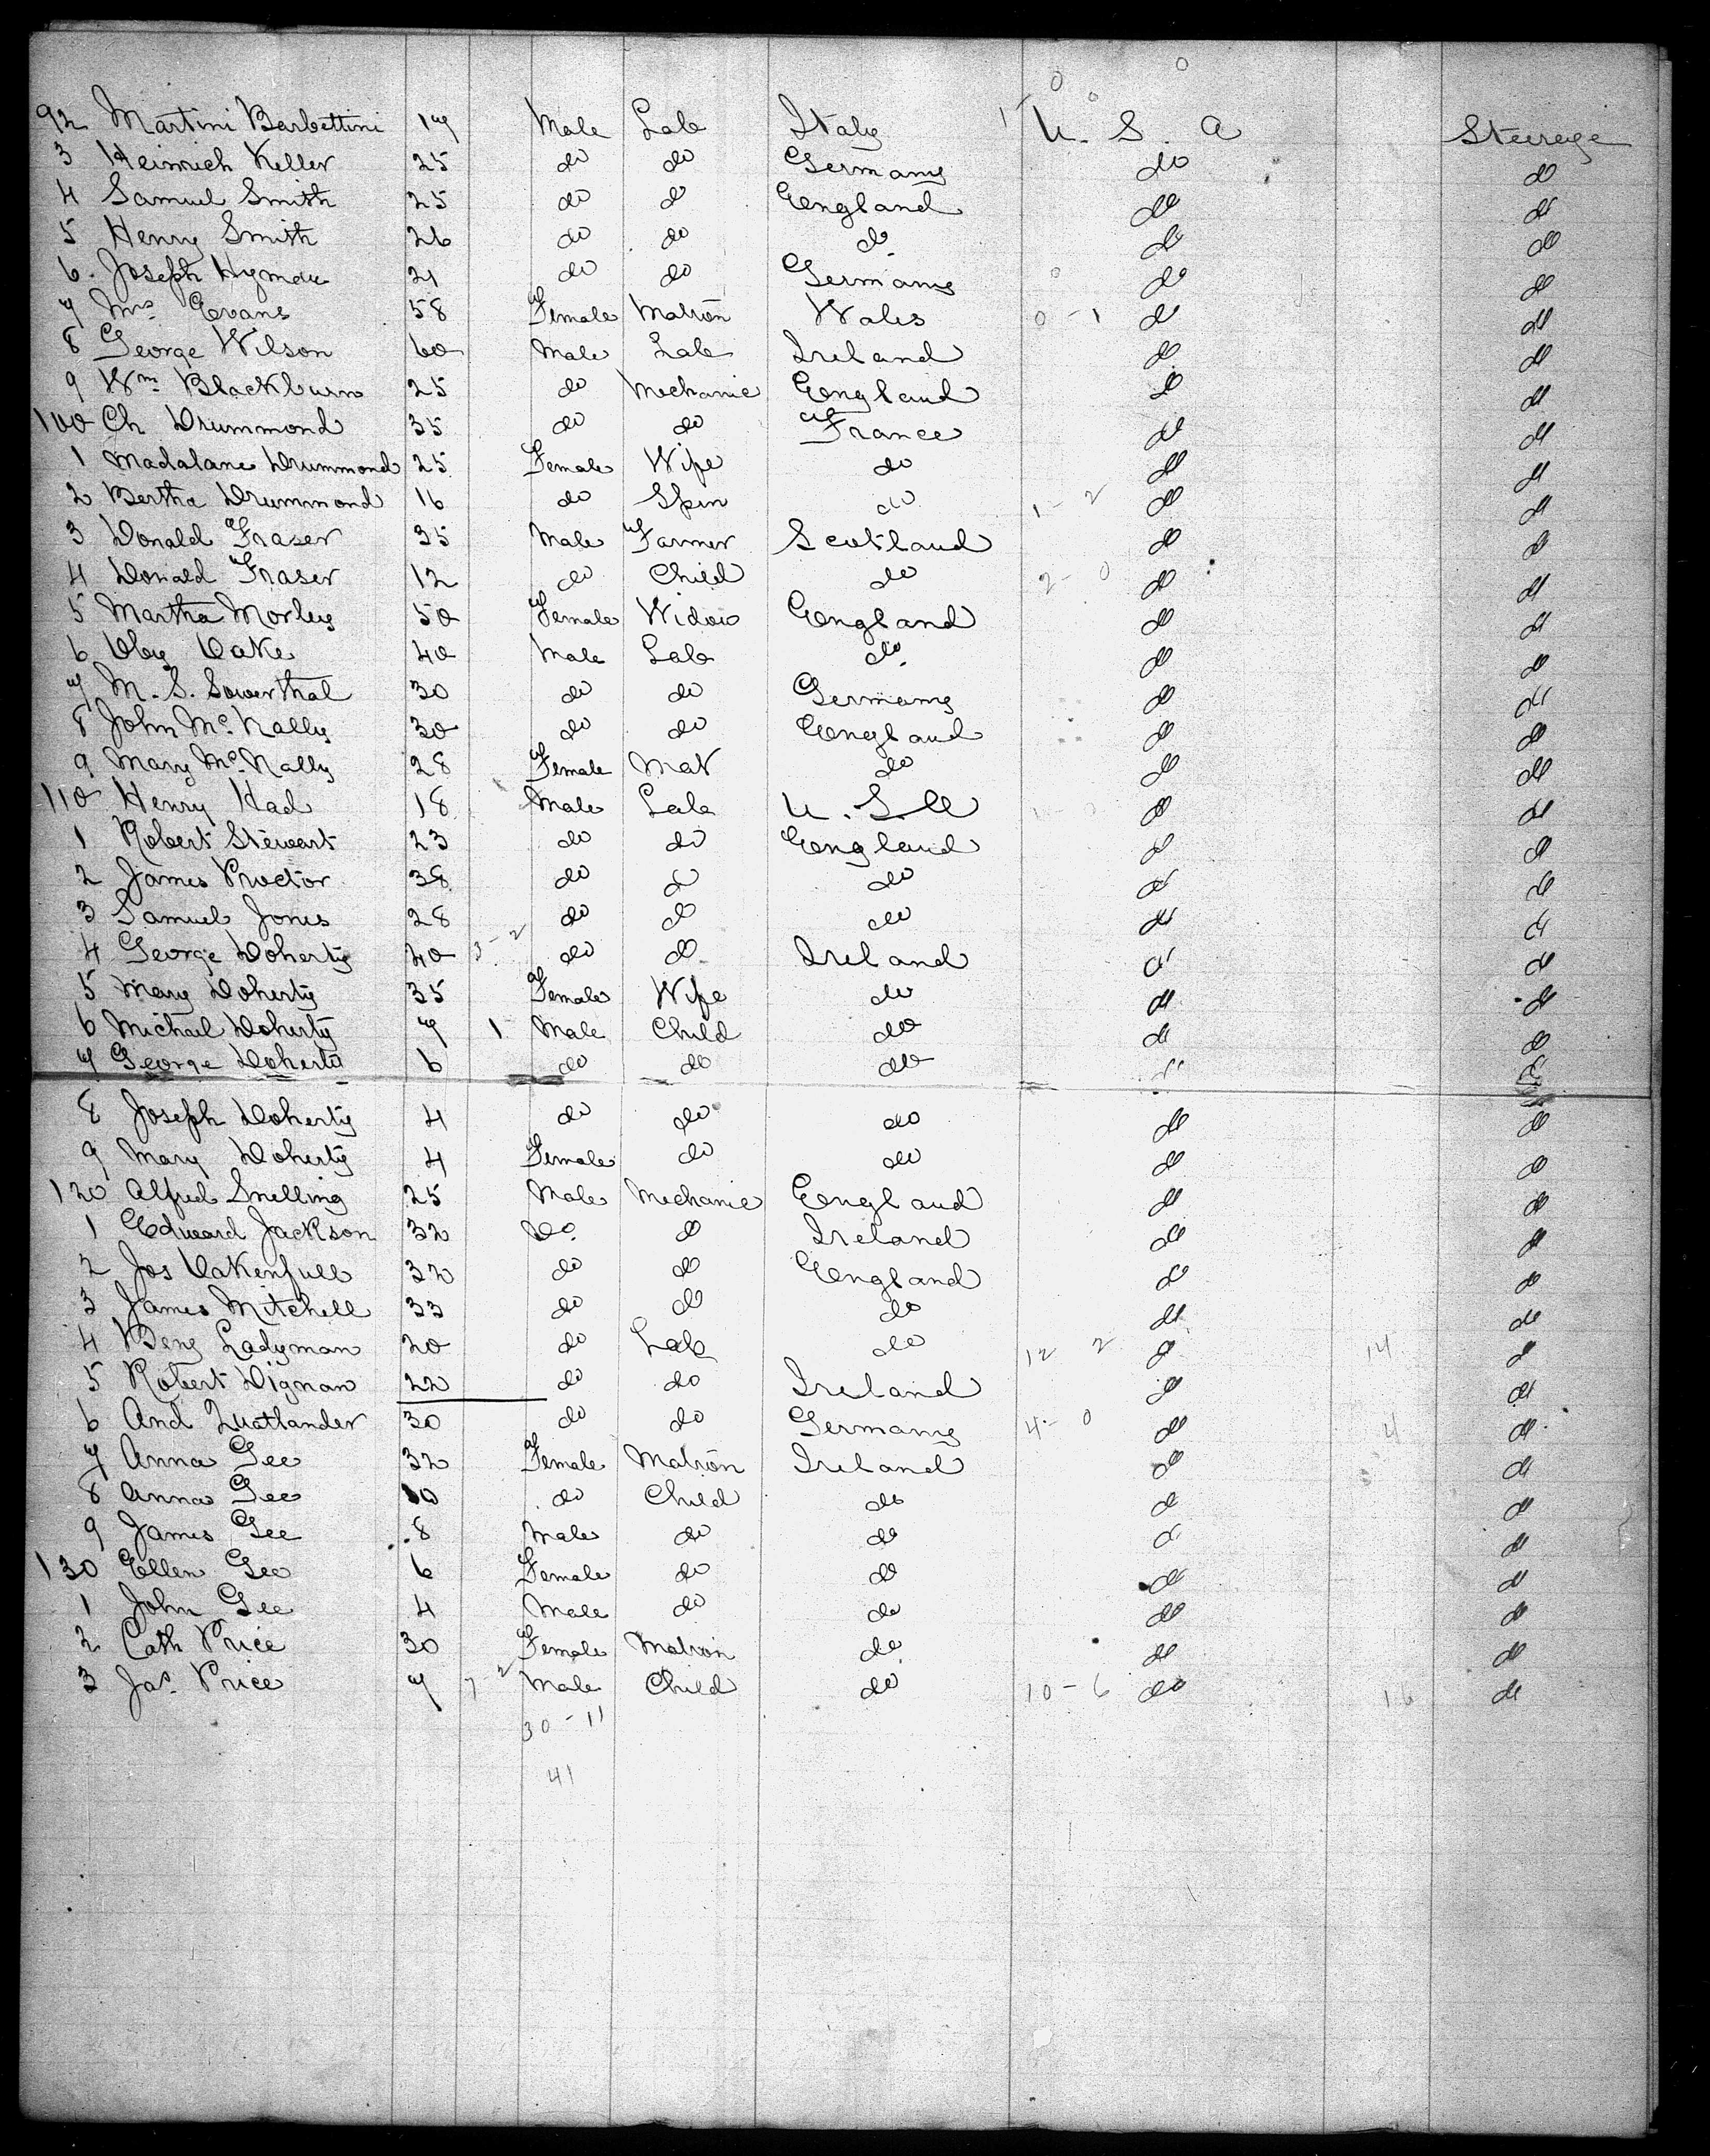 92 Martini Barbettini 17 Male Lab Italy U. S. A Steerage
3 Heinrich Keller 25 do do Germany do do
4 Samuel Smith 25 do do England do do
5 Henry Smith 26 do do do do do
6 Joseph Hyman 21 do do Germany do do
7 Mrs Evans 58 Female Matron Wales 0 - 1 do do
8 George Wilson 60 Male Lab Ireland do do
9 Wm Blackburn 25 do Mechanic England do do
100 Ch Drummond 35 do do France do do
1 Madalane Drummond 25 Female Wife do do do
2 Bertha Drummond 16 do Spin do 1 - 2 do do
3 Donald Fraser 35 Male Farmer Scotland do do
4 Donald Fraser 12 do Child do 2 - 0 do do
5 Martha Morley 50 Female Widow England do do
6 Oake 40 Male Lab do do do
7 M. S. Sowerthal 30 do do Germany do do
8 John McNally 30 do do England do do
9 Mary McNally 28 Female Mat do do do
110 Henry Had 18 Male Lab U. S. A do do
1 Robert Stewart 23 do do England do do
2 James Proctor 38 do do do do do
3 Samuel Jones 28 do do do do do
4 George Doherty 40 3 - 2 do do Ireland do do
5 Mary Doherty 35 Female Wife do do do
6 Michael Doherty 7 1 Male Child do do do
7 George Doherty 6 do do do do
8 Joseph Doherty 4 do do do do do
9 Mary Doherty 4 Female do do do do
120 Alfred Snelling 25 Male Mechanic England do do
1 Edward Jackson 32 Do do Ireland do do
2 Jos Oakenfull 32 do do England do do
3 James Mitchell 33 do do do do do
4 Benj Ladyman 20 do Lab do 12 2 do 14 do
5 Robert Dignan 22 do do Ireland do do
6 And Quatlander 30 do do Germany 4 - 0 do 4 do
7 Anna Gee 32 Female Matron Ireland do do
8 Anna Gee 10 do Child do do do
9 James Gee 8 Male do do do do
130 Ellen Gee 6 Female do do do do
1 John Gee 4 Male do do do do
2 Cath Price 30 Female Matron do do do
3 Jas. Price 7 7 2 Male Child do 10 - 6 do 16 do
30 - 11
41